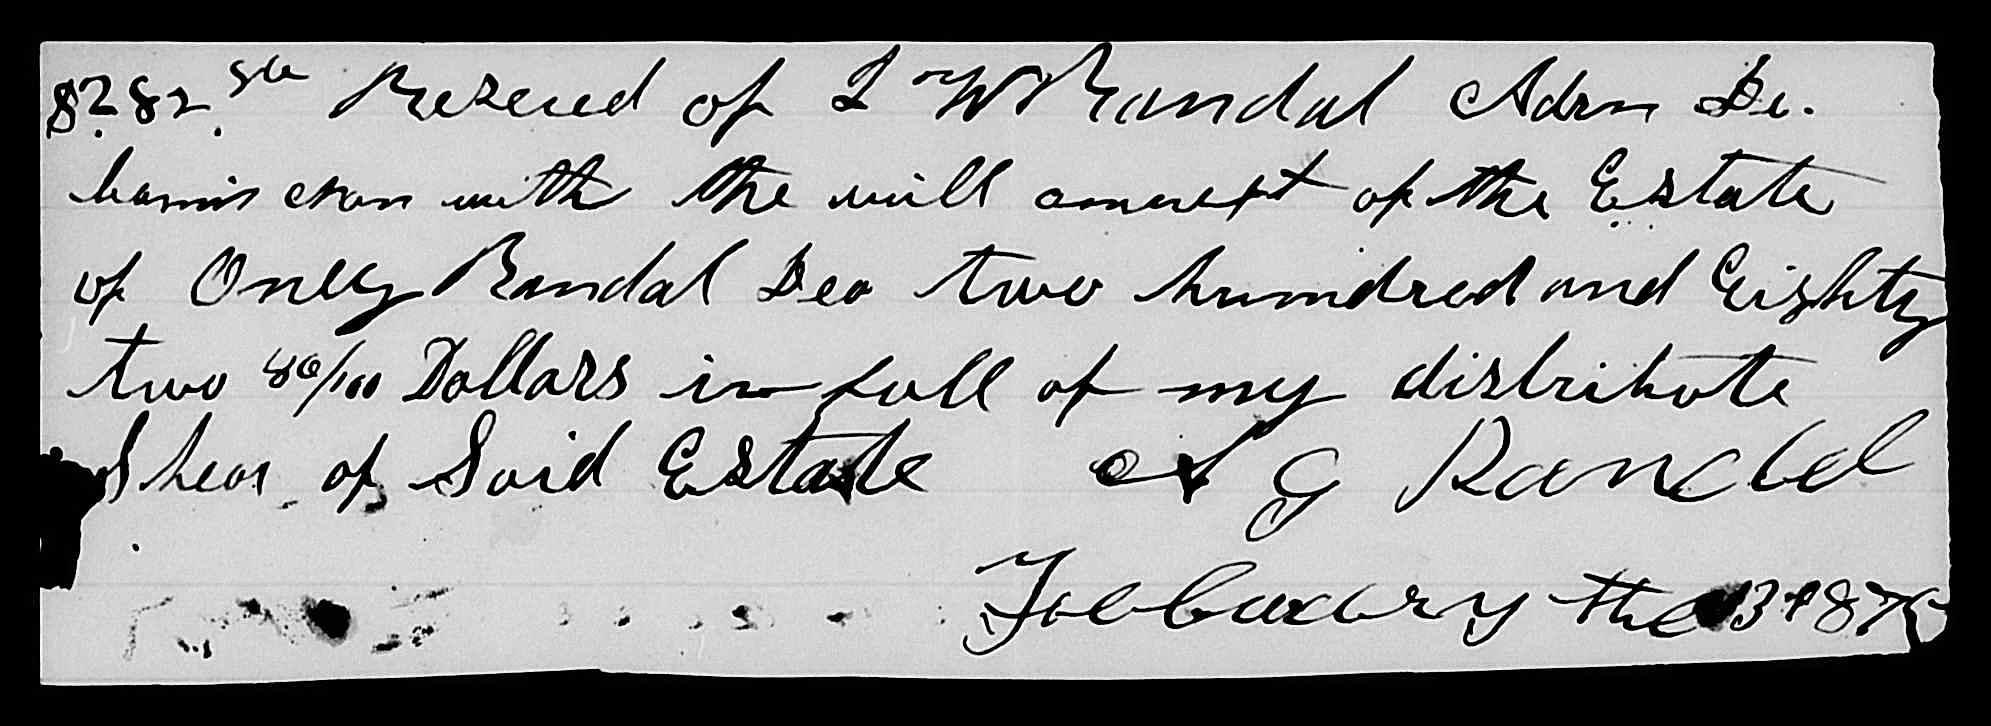 $282.80 Rezeued of I W Randal Adm De.
bonnis non with the will annext of the Estate
of Only Randal Deo two hundred and Eighty
two 80/100 Dollars in full of my distribute
Shear of Said Estate A G Randel
Febuarry the 3 187